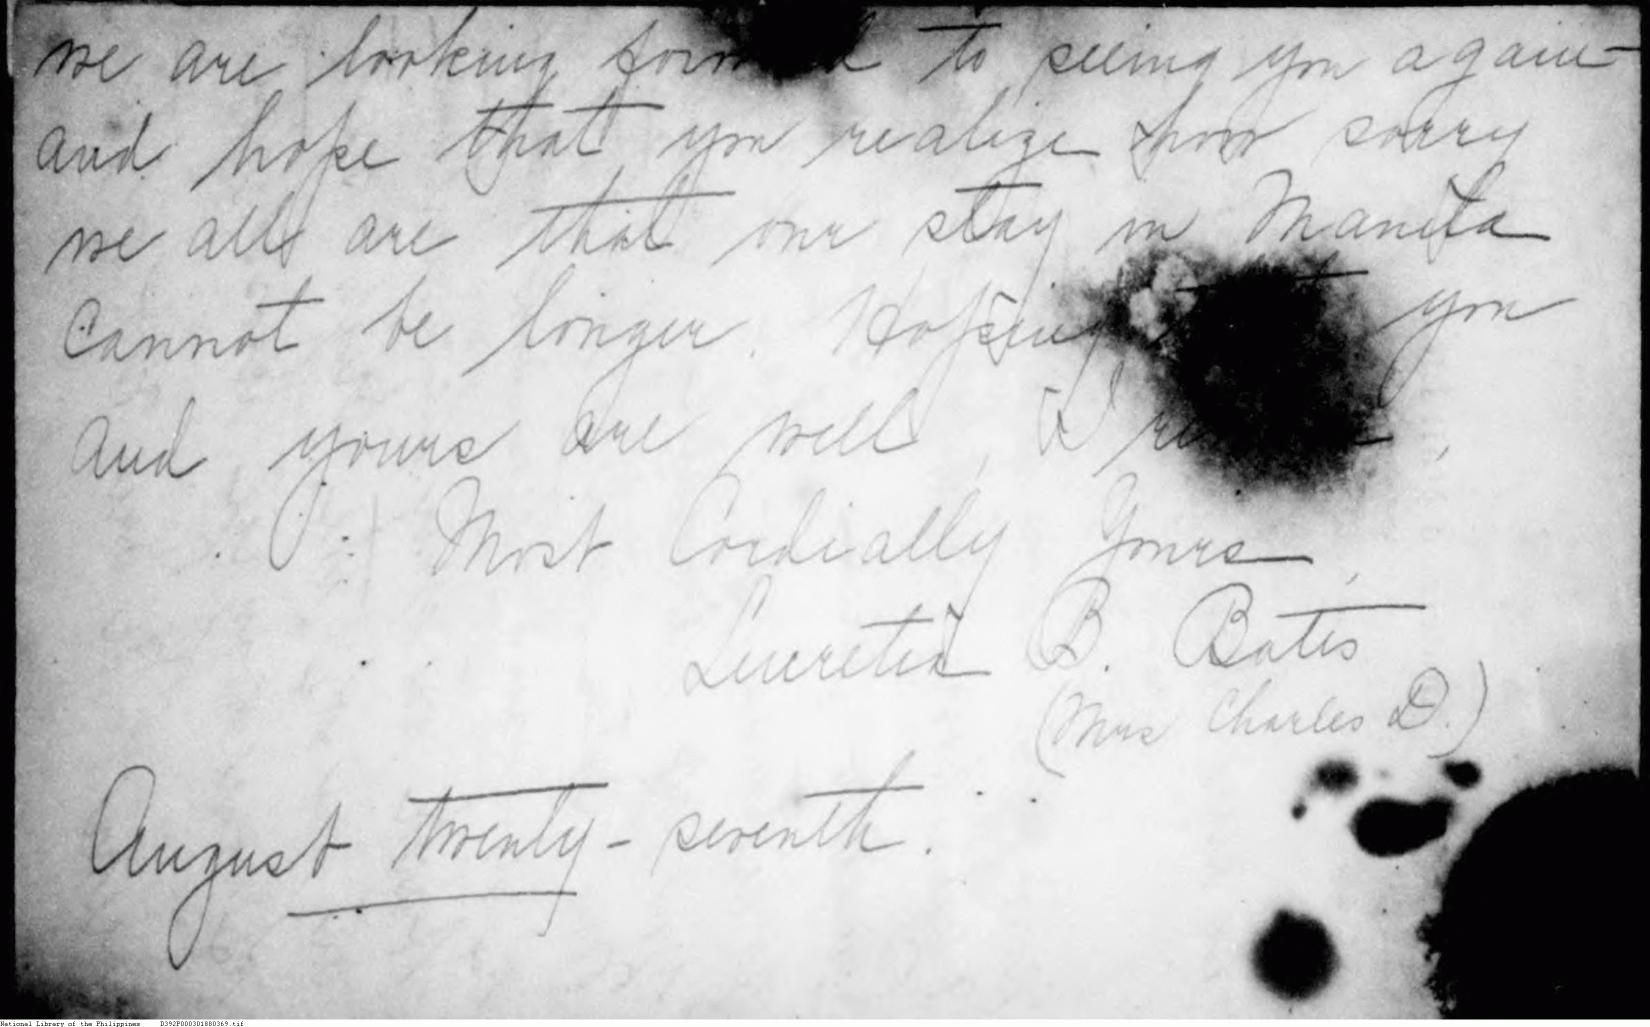 we are looking forward to seeing you again –
and hope that you realize how sorry
we all are that our stay in Manila
cannot be longer. Hoping that you
and yours are well, I remain,
Most Cordially Yours,
Lucretia B. Bates
(Mrs Charles D.)
August twenty-seventh.
National Library of the Philippines D392P000301880369.tif